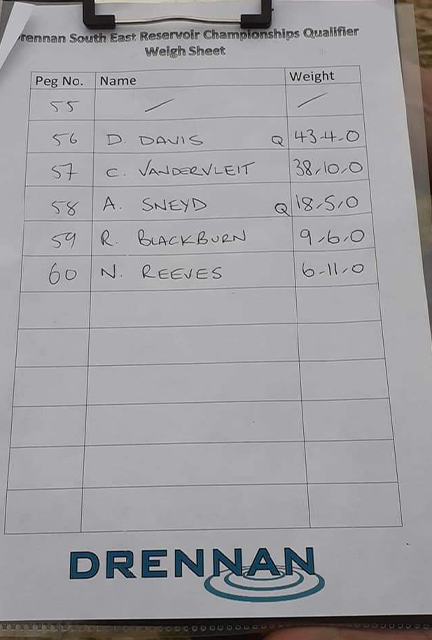 rennan South East Reservoir Championships Qualifier
Weigh Sheet
Peg No. Name Weight
55 / /
56 D. DAVIS Q 43-4-0
57 C. VANDERVLEIT 38-10-0
58 A. SNEYD Q 18-5-0
59 R. BLACKBURN 9-6-0
60 N. REEVES 6-11-0
DRENNAN